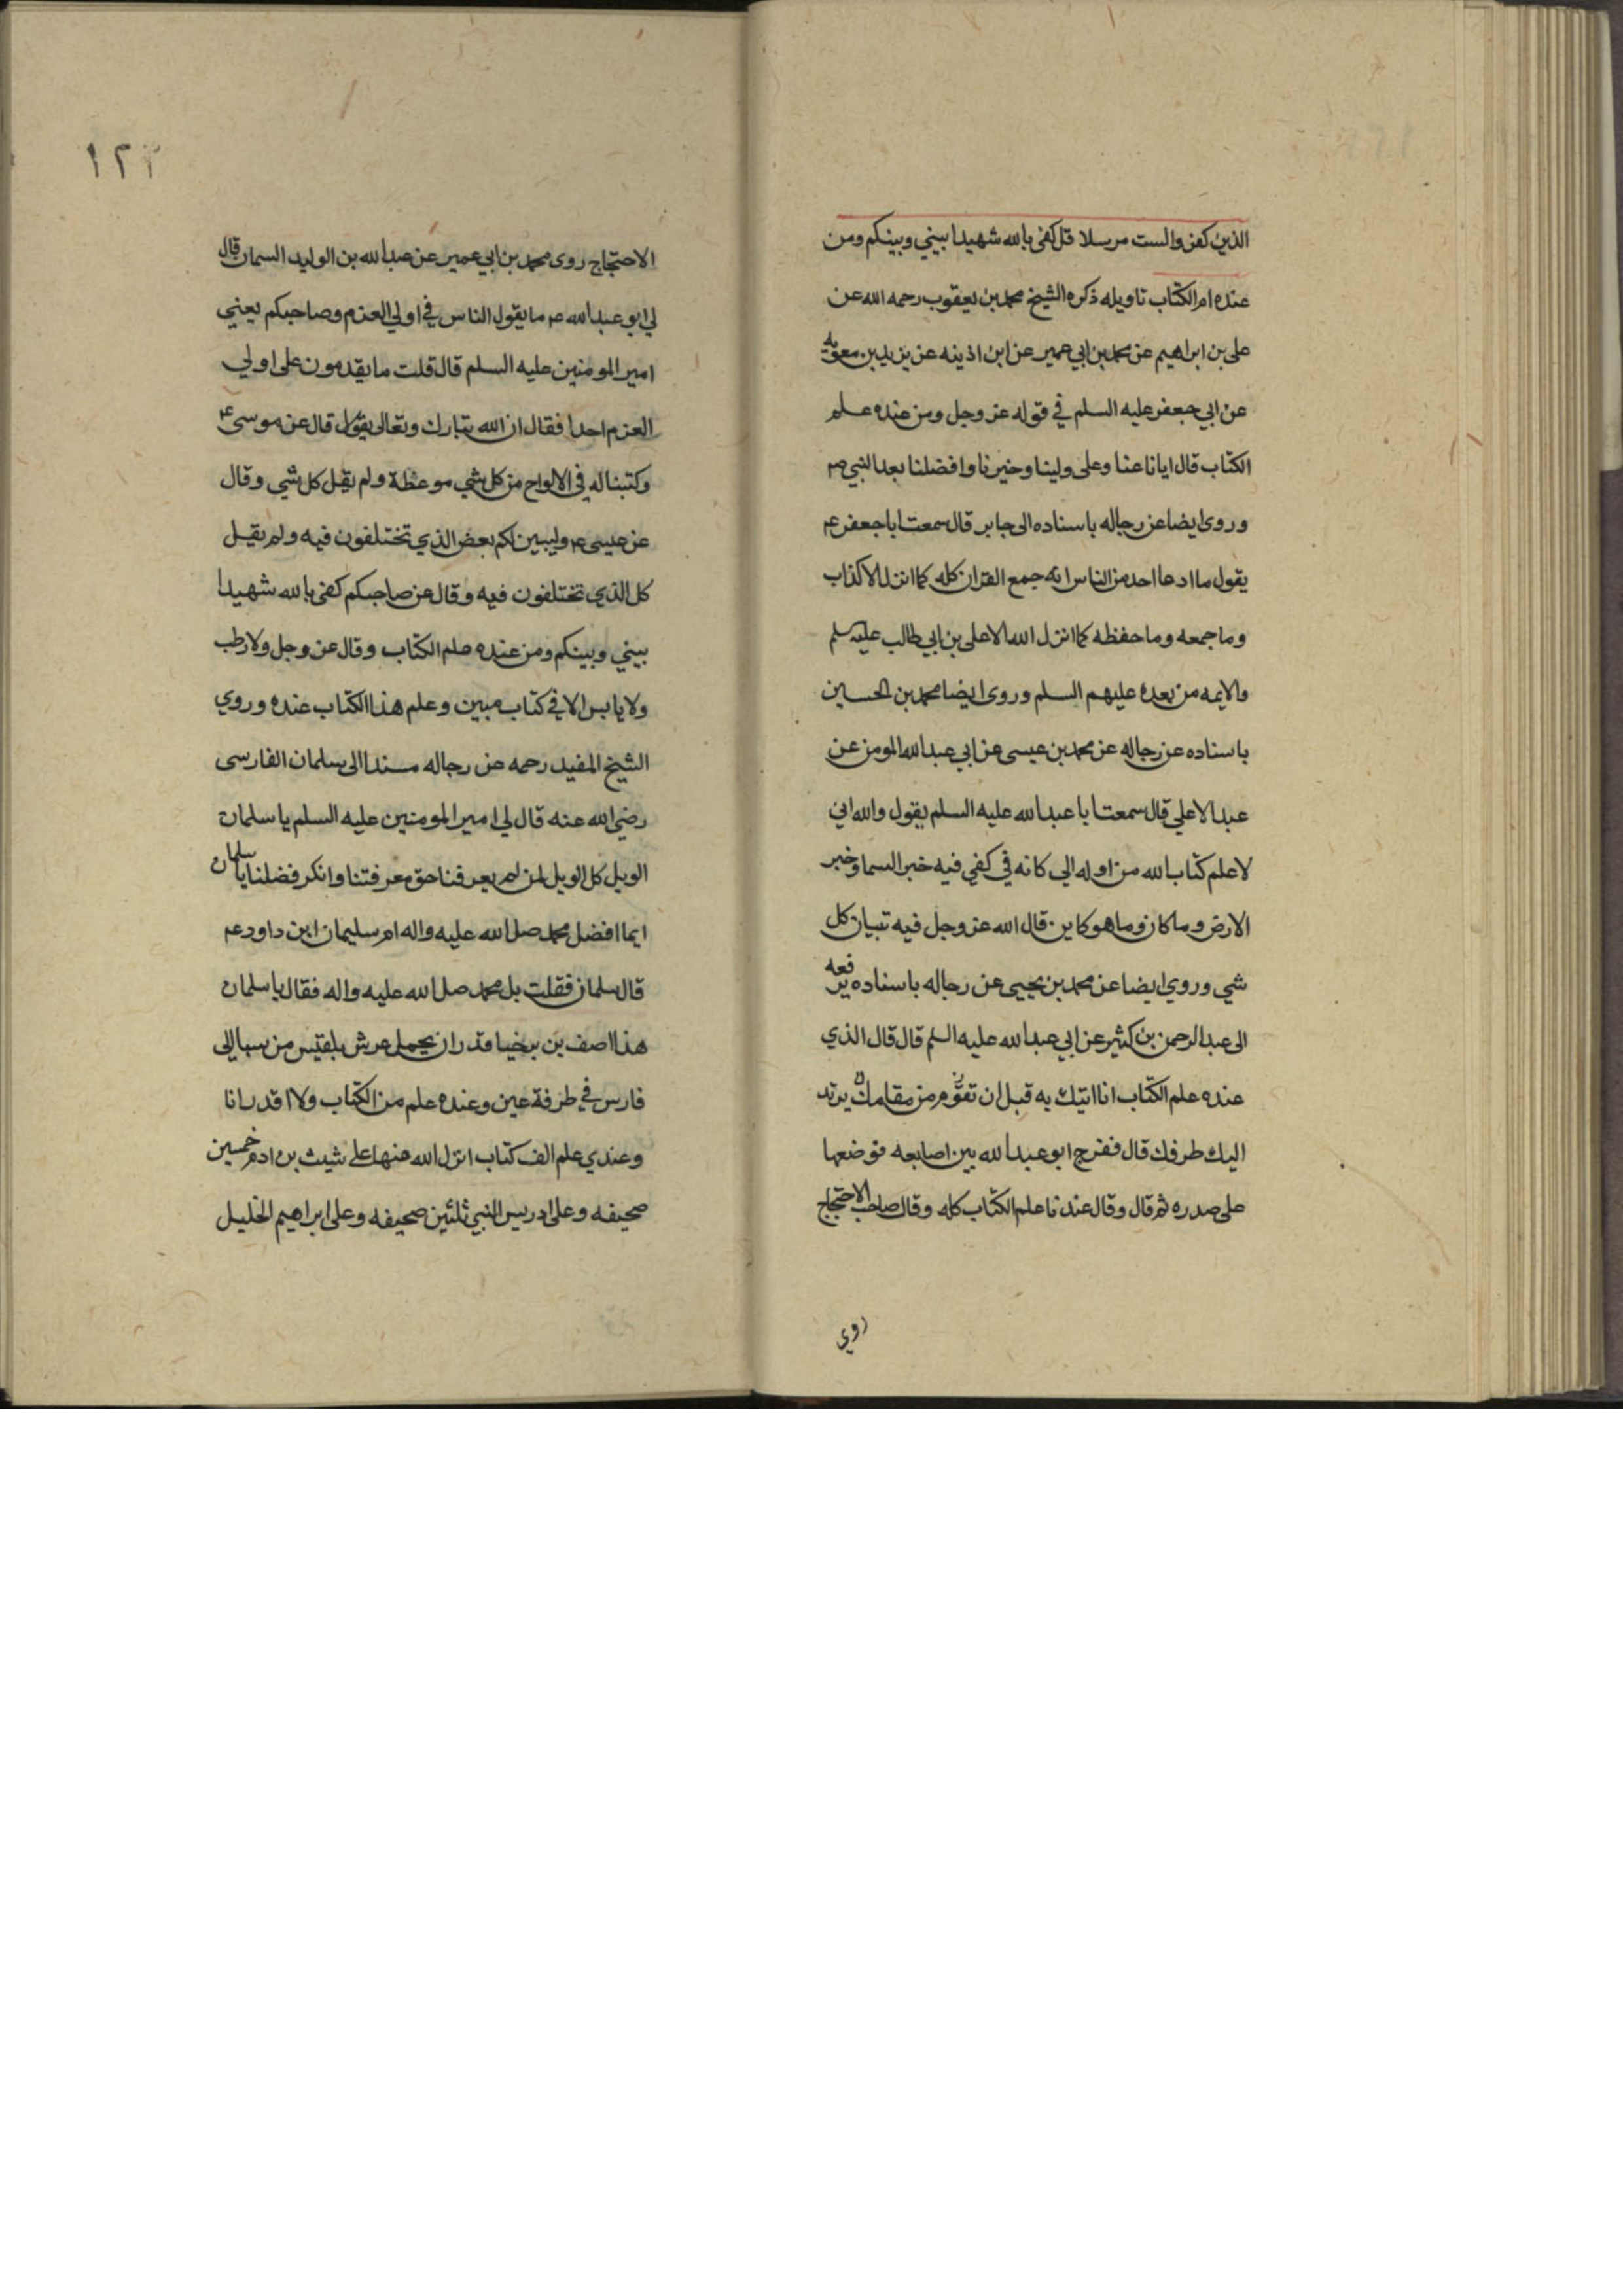 الذين كفروا لست مرسلا قل كفى بالله شهيدا بيني وبينكم ومن
عنده ام الكتاب تاويله ذكره الشيخ محمد بن يعقوب رحمه الله عن
على بن ابراهيم عن محمد بن ابي عمير عن ابن اذينه عن يزيد بن معويه
عن ابي جعفر عليه السلم في قوله عز وجل ومن عنده علم
الكتاب قال ايانا عنا وعلى ولينا وخيرنا وافضلنا بعد النبي ص
وروى ايضا عن رجاله باسناده الى جابر قال سمعت ابا جعفر ع
يقول ما ادعا احد من الناس انه جمع القران كله كما انزل الا كذاب
وما جمعه وما حفظه كما انزل الله الا على بن ابي طالب عليه سلم
والايمه من بعده عليهم السلم وروى ايضا محمد بن الحسين
باسناده عن رجاله عن محمد بن عيسى عن ابي عبد الله المومن عن
عبد الاعلي قال سمعت ابا عبد الله عليه السلم يقول والله اني
لاعلم كتاب الله من اوله الى كانه في كفي فيه خبر السما وخبر
الارض وما كان وما هو كاين قال الله عز وجل فيه تبيان كل
شي وروي ايضا عن محمد بن يحيى عن رجاله باسناده يرفعه
الى عبد الرحمن بن كثير عن ابي عبد الله عليه السلم قال قال الذي
عنده علم الكتاب انا اتيك به قبل ان تقوم من مقامك يرتد
اليك طرفك قال ففرج ابو عبد الله بين اصابعه فوضعها
على صدره ثم قال وقال عندنا علم الكتاب كله وقال صاحب الاحتجاج
روي
١٢٢
الاحتجاج روى محمد بن ابي عمير عن عبد الله بن الوليد السمان قال
لي ابو عبد الله ع ما يقول الناس في اولي العزم وصاحبكم يعني
امير المومنين عليه السلم قال قلت ما يقدمون على اولي
العزم احدا فقال ان الله تبارك وتعالى يقول قال عن موسى ع
وكتبنا له في الالواح من كل شي موعظة ولم يقل كل شي وقال
عن عيسى ع وليبين لكم بعض الذي تختلفون فيه ولم يقل
كل الذي تختلفون فيه وقال عن صاحبكم كفى بالله شهيدا
بيني وبينكم ومن عنده علم الكتاب وقال عز وجل ولا رطب
ولا يابس الا في كتاب مبين وعلم هذا الكتاب عنده وروي
الشيخ المفيد رحمه عن رجاله مسندا الى سلمان الفارسى
رضي الله عنه قال لي امير المومنين عليه السلم يا سلمان
الويل كل الويل لمن لم يعرفنا حق معرفتنا وانكر فضلنا يا سلمان
ايما افضل محمد صل الله عليه واله ام سليمان ابن داود ع
قال سلمان فقلت بل محمد صل الله عليه واله فقال يا سلمان
هذا اصف بن برخيا قدر ان يحمل عرش بلقيس من سبا الى
فارس في طرفة عين وعنده علم من الكتاب ولا اقدر انا
وعندي علم الف كتاب انزل الله منها على شيث بن ادم خمسين
صحيفه وعلى ادريس النبي ثلثين صحيفه وعلى ابراهيم الخليل